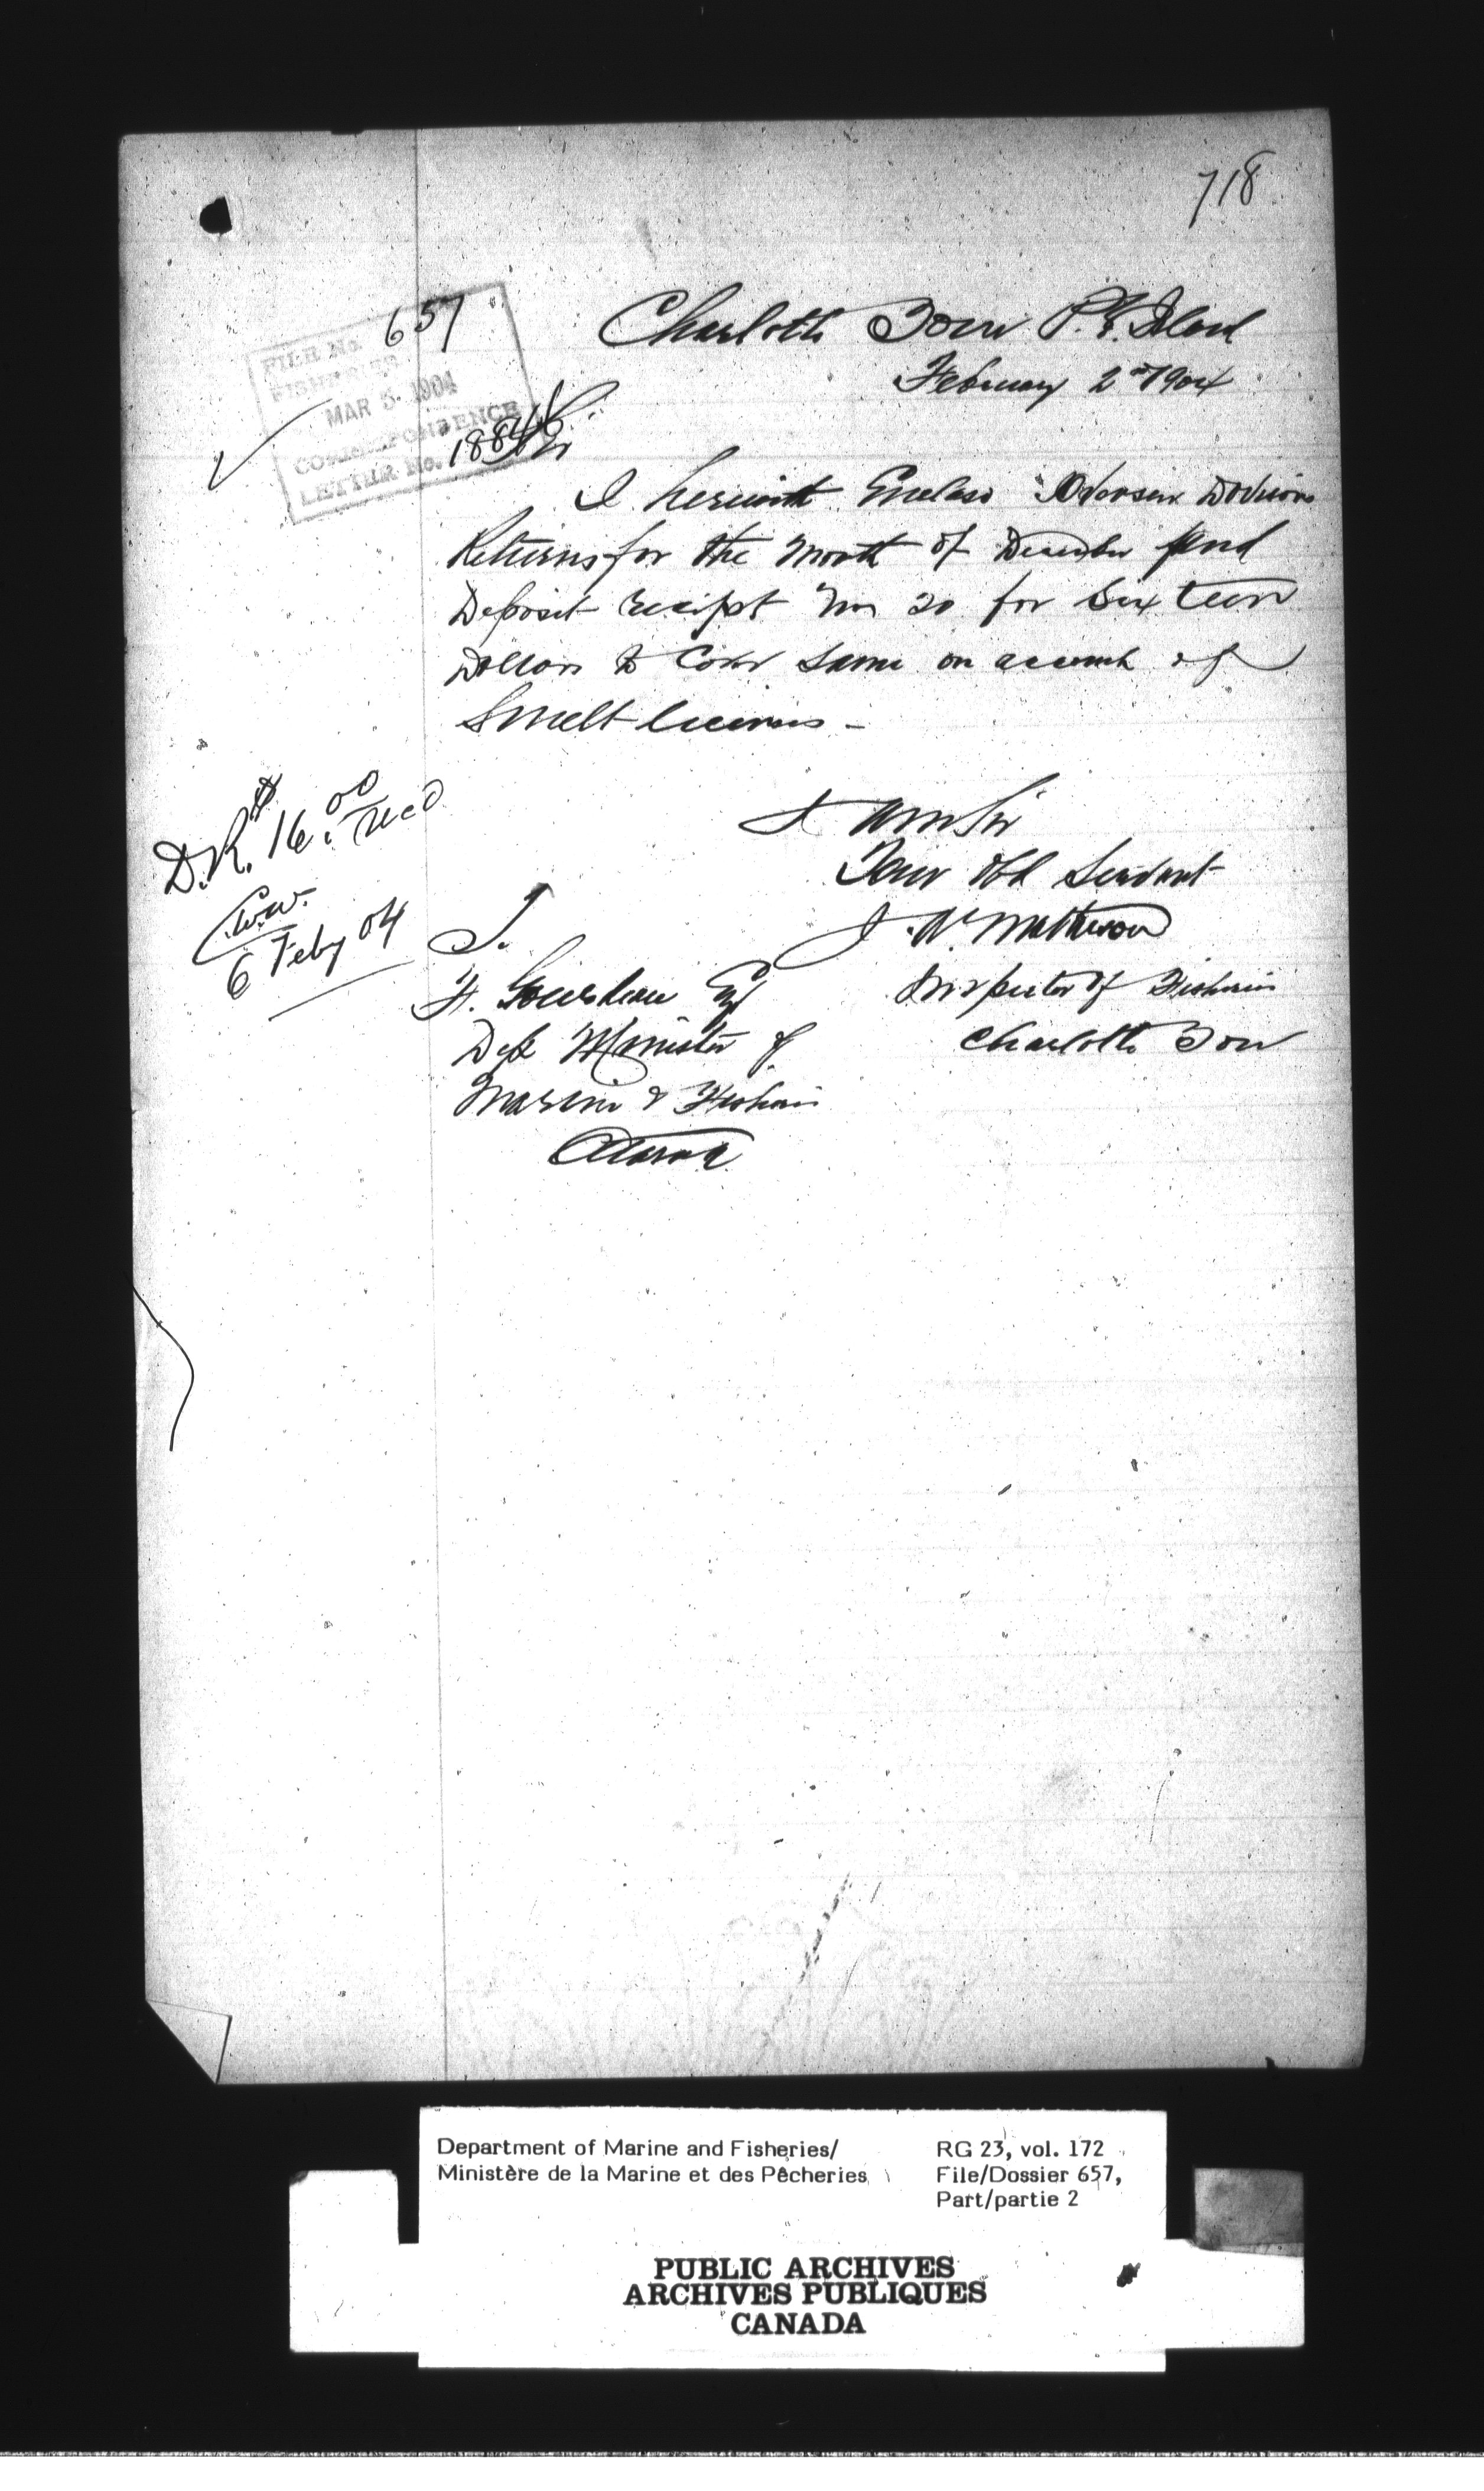 718
657
FILE No.
FISHERIES
MAR 5 1904
CORRESPONDENCE
LETTER No.
Charlotte Town P. E. Island
February 2nd 1904
Sir
I herewith Enclose Division
Returns for the Month of December and
Deposit receipt No 20 for Sixteen
Dollars to Cover Same on account of
Smelt licenses -
I am Sir
Your Obd Servant
J. A. Matheson
Inspector of Fisheries
Charlotte Town
D.R. $16.00 rec'd
C.W.
6 Feby 04
F. Gourdeau Esq
Dep Minister of
Marine & Fisheries
Ottawa
Department of Marine and Fisheries/
Ministère de la Marine et des Pêcheries
RG 23, vol. 172
File/Dossier 657,
Part/partie 2
PUBLIC ARCHIVES
ARCHIVES PUBLIQUES
CANADA